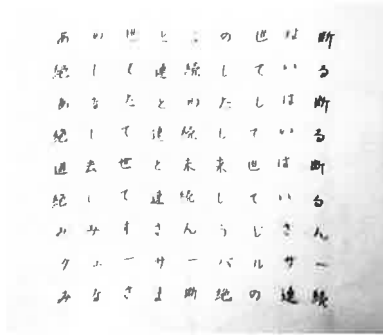 あの世とこの世は断
絶して連続している
あなたとわたしは断
絶して連続している
過去世と未来世は断
絶して連続している
みみずさんうじさん
クェーサーパルサー
みなさま断絶の連続